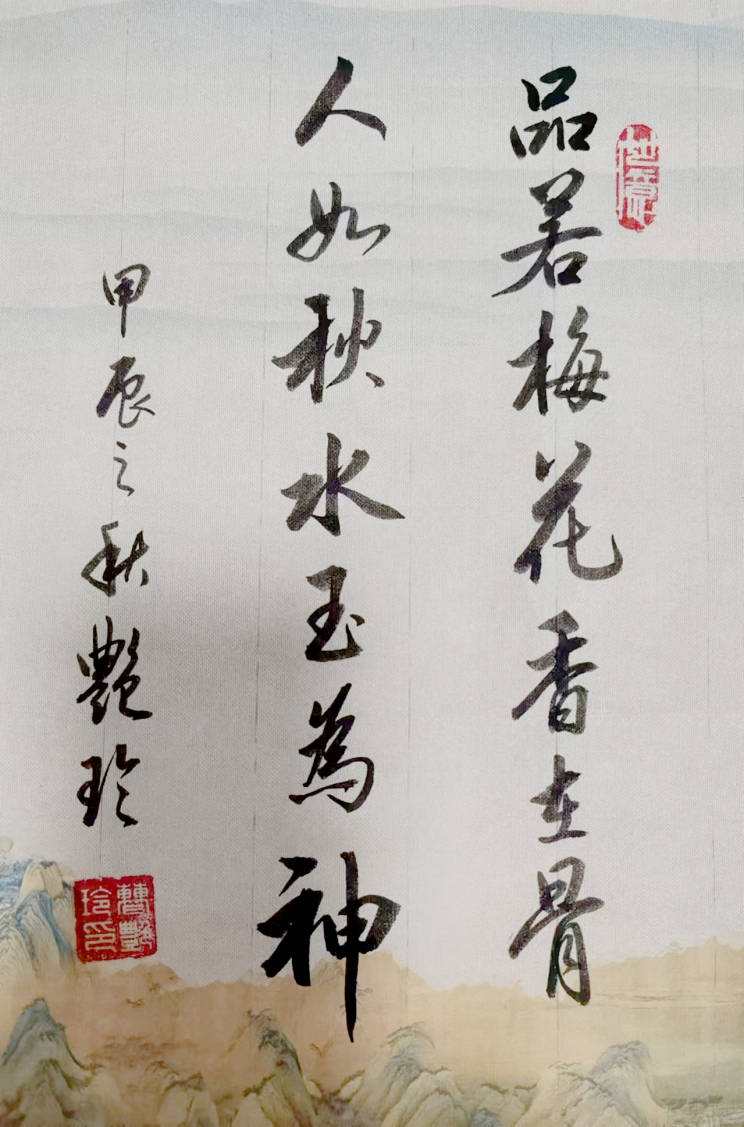 品若梅花香在骨
人如秋水玉為神
甲辰之秋艷玲
曹艷玲印